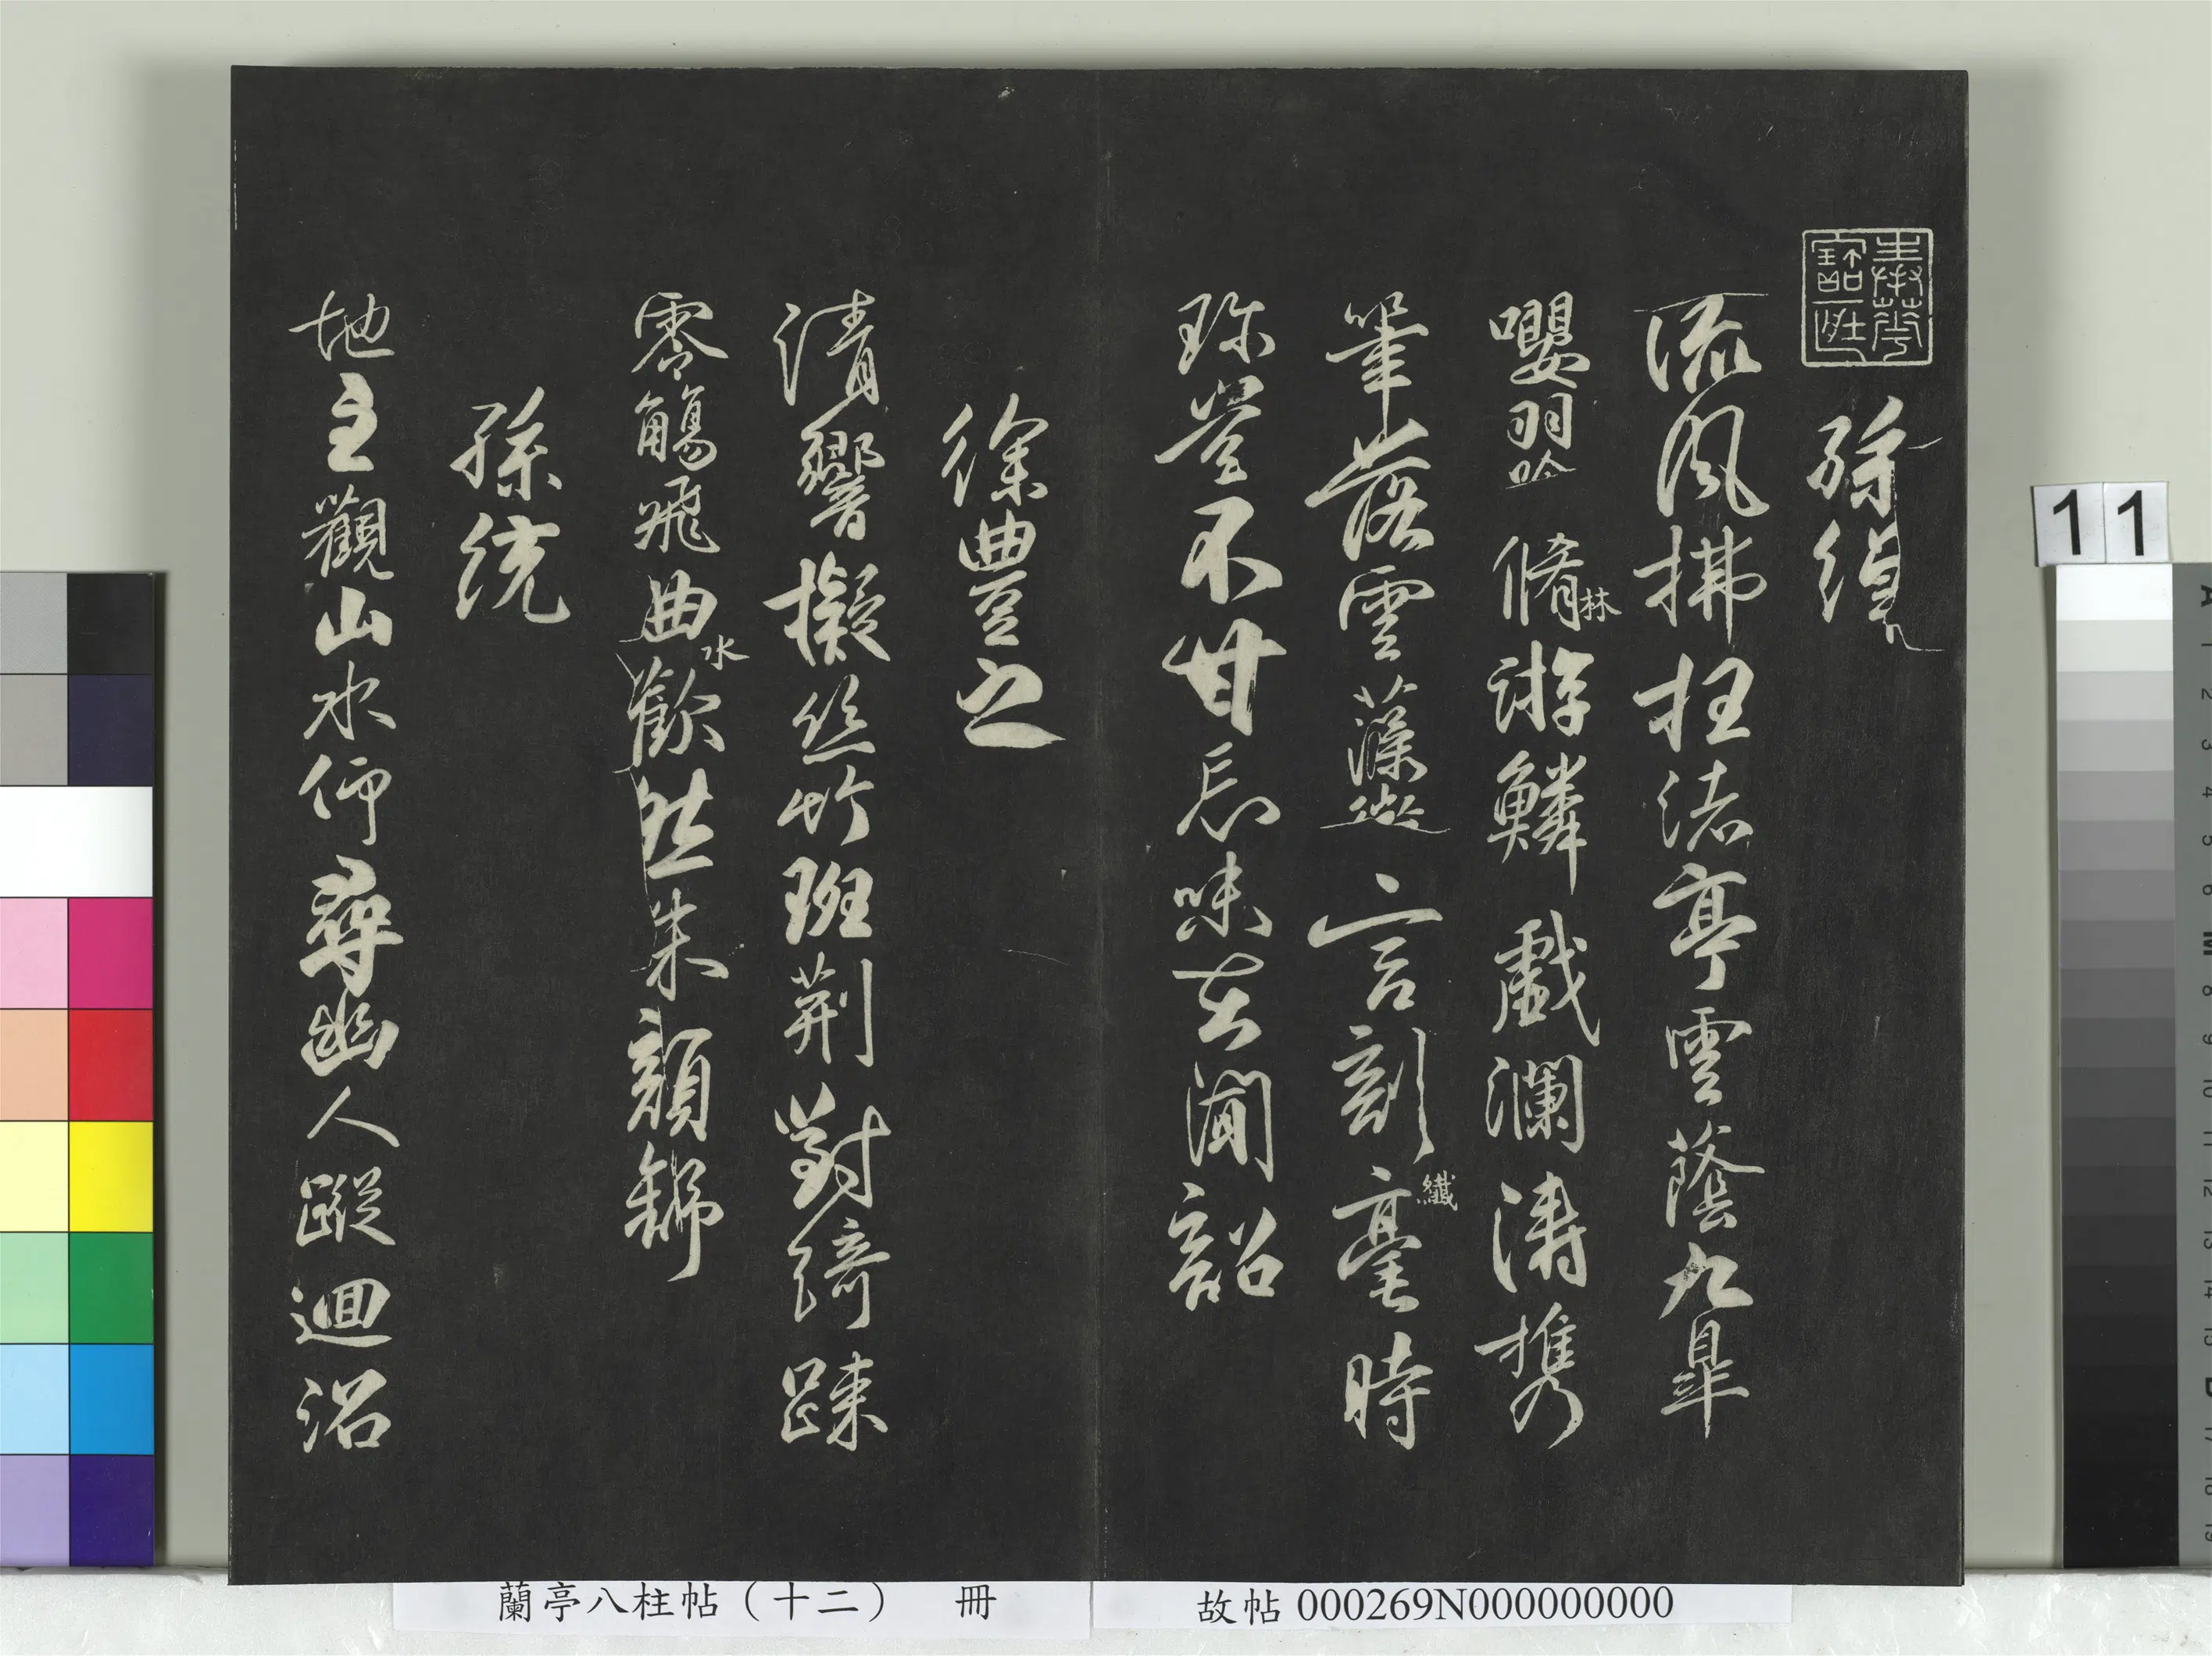 孫綽
流風拂枉渚亭雲蔭九皐
嚶羽吟脩林游鱗戲瀾濤攜
筆落雲藻微言剖纖毫時
珍豈不甘忘味在聞韶
徐豐之
清響擬絲竹班荊對綺疎
零觴飛曲水歡然朱顏舒
孫統
地主觀山水仰尋幽人蹤迴沼
11
蘭亭八柱帖（十二） 冊
故帖 000269N000000000